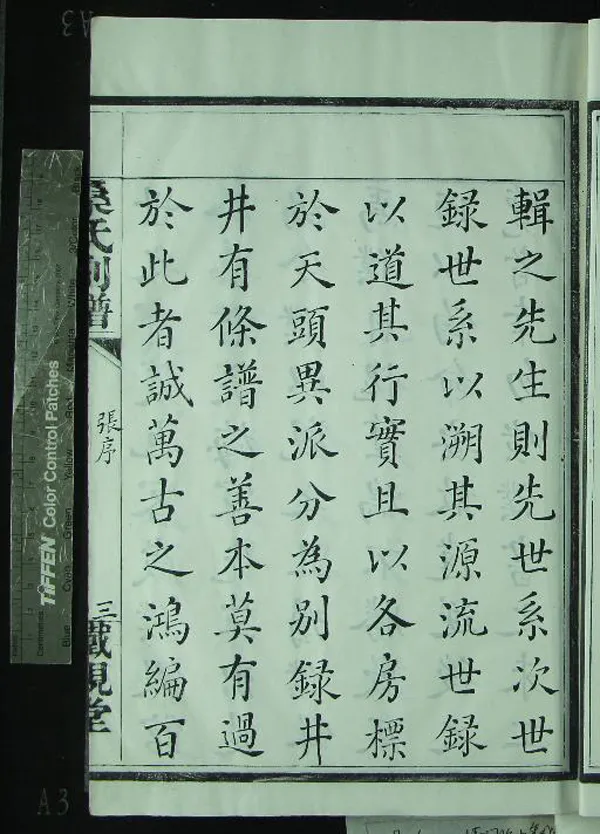 輯之先生則先世系次世
録世系以溯其源流世録
以道其行實且以各房標
於天頭異派分為別録井
井有條譜之善本莫有過
於此者誠萬古之鴻編百
吳氏別譜
張序
三
觀堂
TIFFEN Color Control Patches
Blue
Cyan
Green
Yellow
Red
Magenta
White
A3
A3